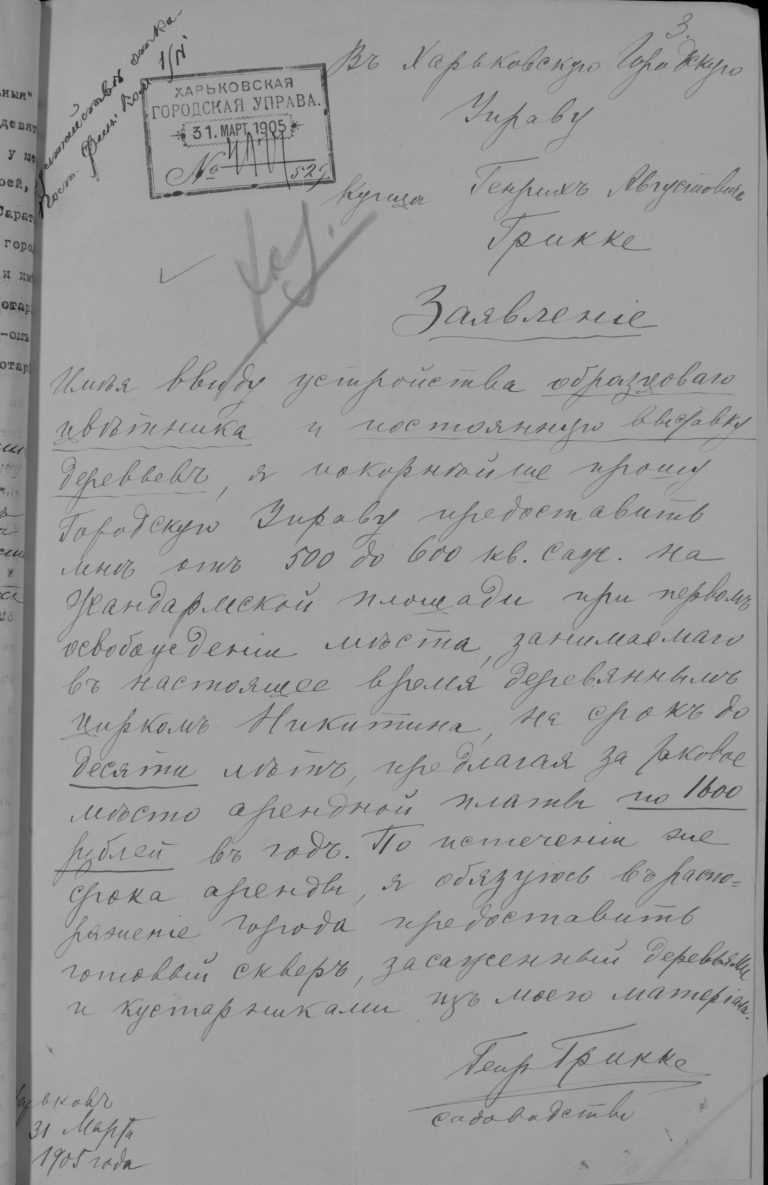 3.
ХАРЬКОВСКАЯ
ГОРОДСКАЯ УПРАВА.
31. МАРТ. 1905
№
Въ Харьковскую Городскую
Управу
Купца Генрихъ Августовича
Грикке
Заявленіе
Имѣя ввиду устройства образцоваго
цвѣтника и постоянную выставку
деревьевъ, я покорнѣйше прошу
Городскую Управу предоставить
мнѣ отъ 500 до 600 кв. саж. на
Жандармской площади при первомъ
освобожденіи мѣста, занимаемаго
въ настоящее время деревяннымъ
циркомъ Никитина, на срокъ до
десяти лѣтъ, предлагая за таковое
мѣсто арендной платы по 1600
рублей въ годъ. По истеченіи же
срока аренды, я обязуюсь въ распо=
ряженіе города предоставить
готовый скверъ, засаженный деревьями
и кустарниками изъ моего матеріала.
Генр Грикке
садоводство
31 Марта
1905 года